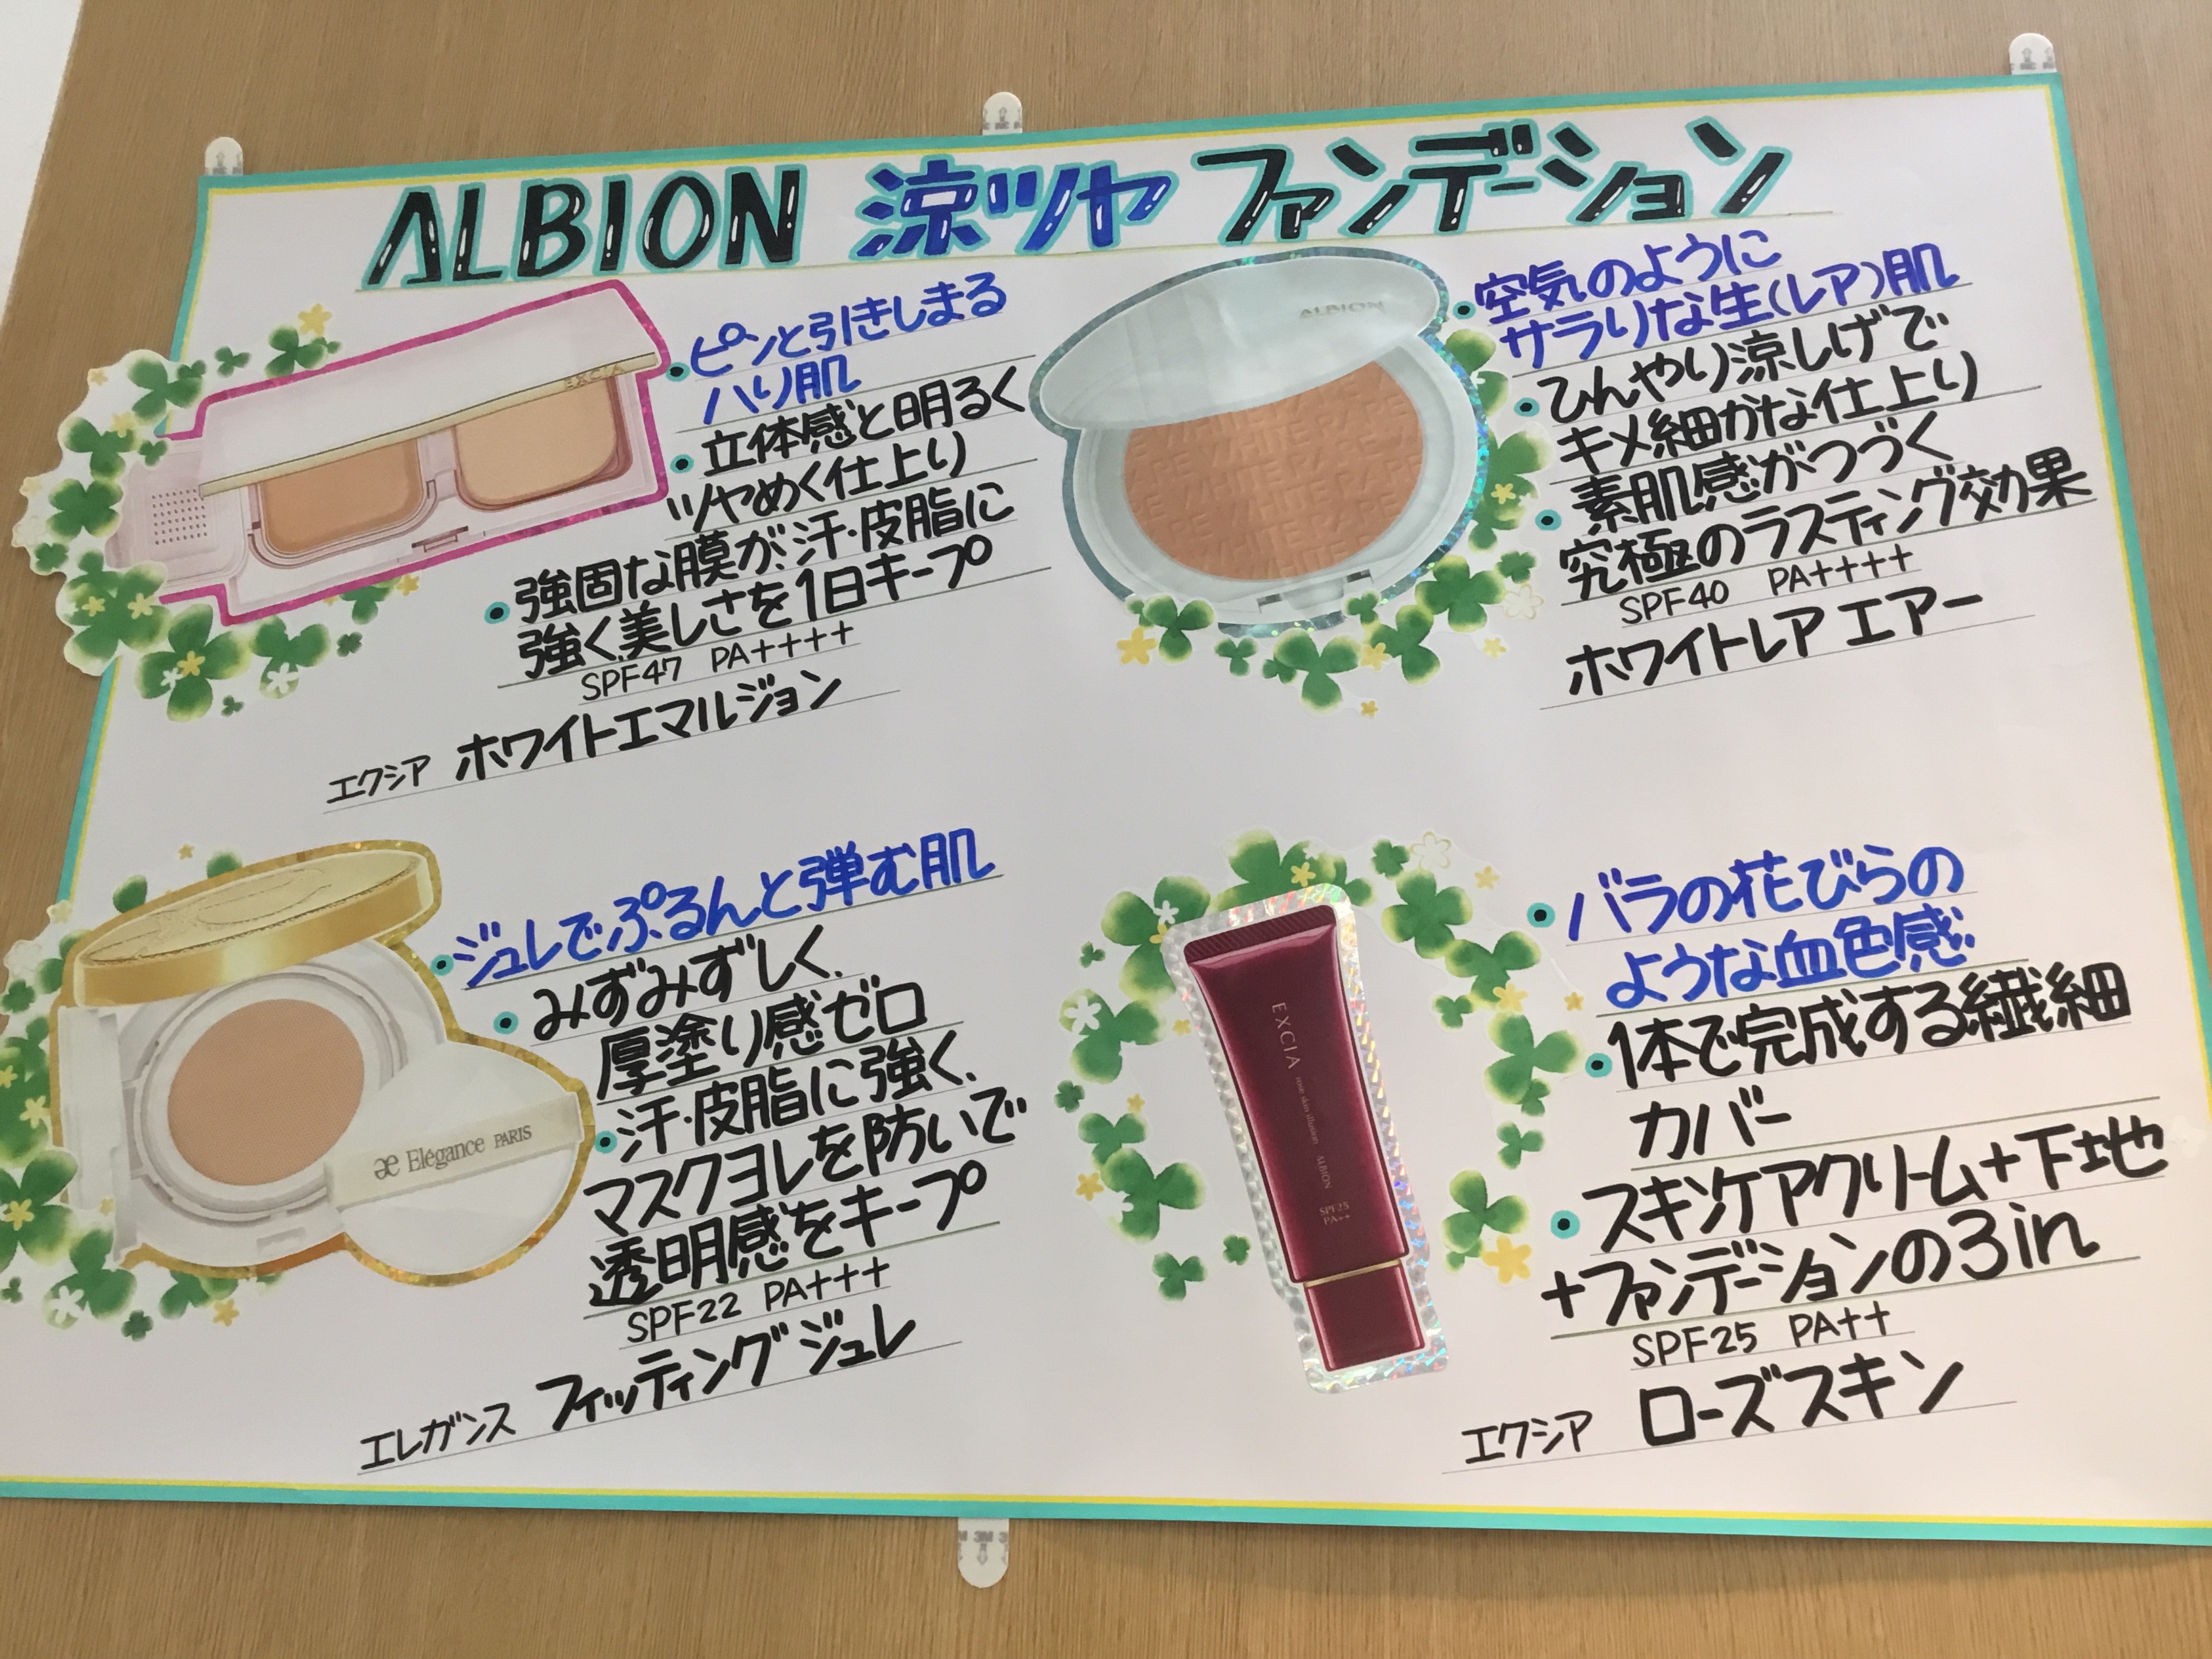 ALBION 涼ツヤ ファンデーション
EXCIA
・ピンと引きしまる
ハリ肌
・立体感と明るく
ツヤめく仕上り
・強固な膜が、汗・皮脂に
強く、美しさを1日キープ
SPF47 PA++++
エクシア ホワイトエマルジョン
ALBION
・空気のように
サラリな生(レア)肌
・ひんやり涼しげで
キメ細かな仕上り
・素肌感がつづく
究極のラスティング効果
SPF40 PA++++
ホワイトレア エアー
æ Elégance PARIS
・ジュレでぷるんと弾む肌
・みずみずしく、
厚塗り感ゼロ
・汗・皮脂に強く、
マスクヨレを防いで
透明感をキープ
SPF22 PA+++
エレガンス フィッティング ジュレ
EXCIA
rose skin illusion
ALBION
SPF25
PA++
・バラの花びらの
ような血色感
・1本で完成する繊細
カバー
・スキンケアクリーム+下地
+ファンデーションの3in
SPF25 PA++
エクシア ローズスキン